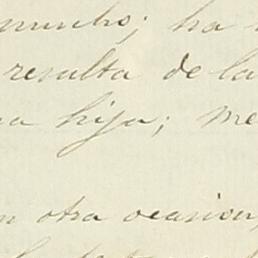 mucho; ha
resulta de la
hija; me
otra ocasion,